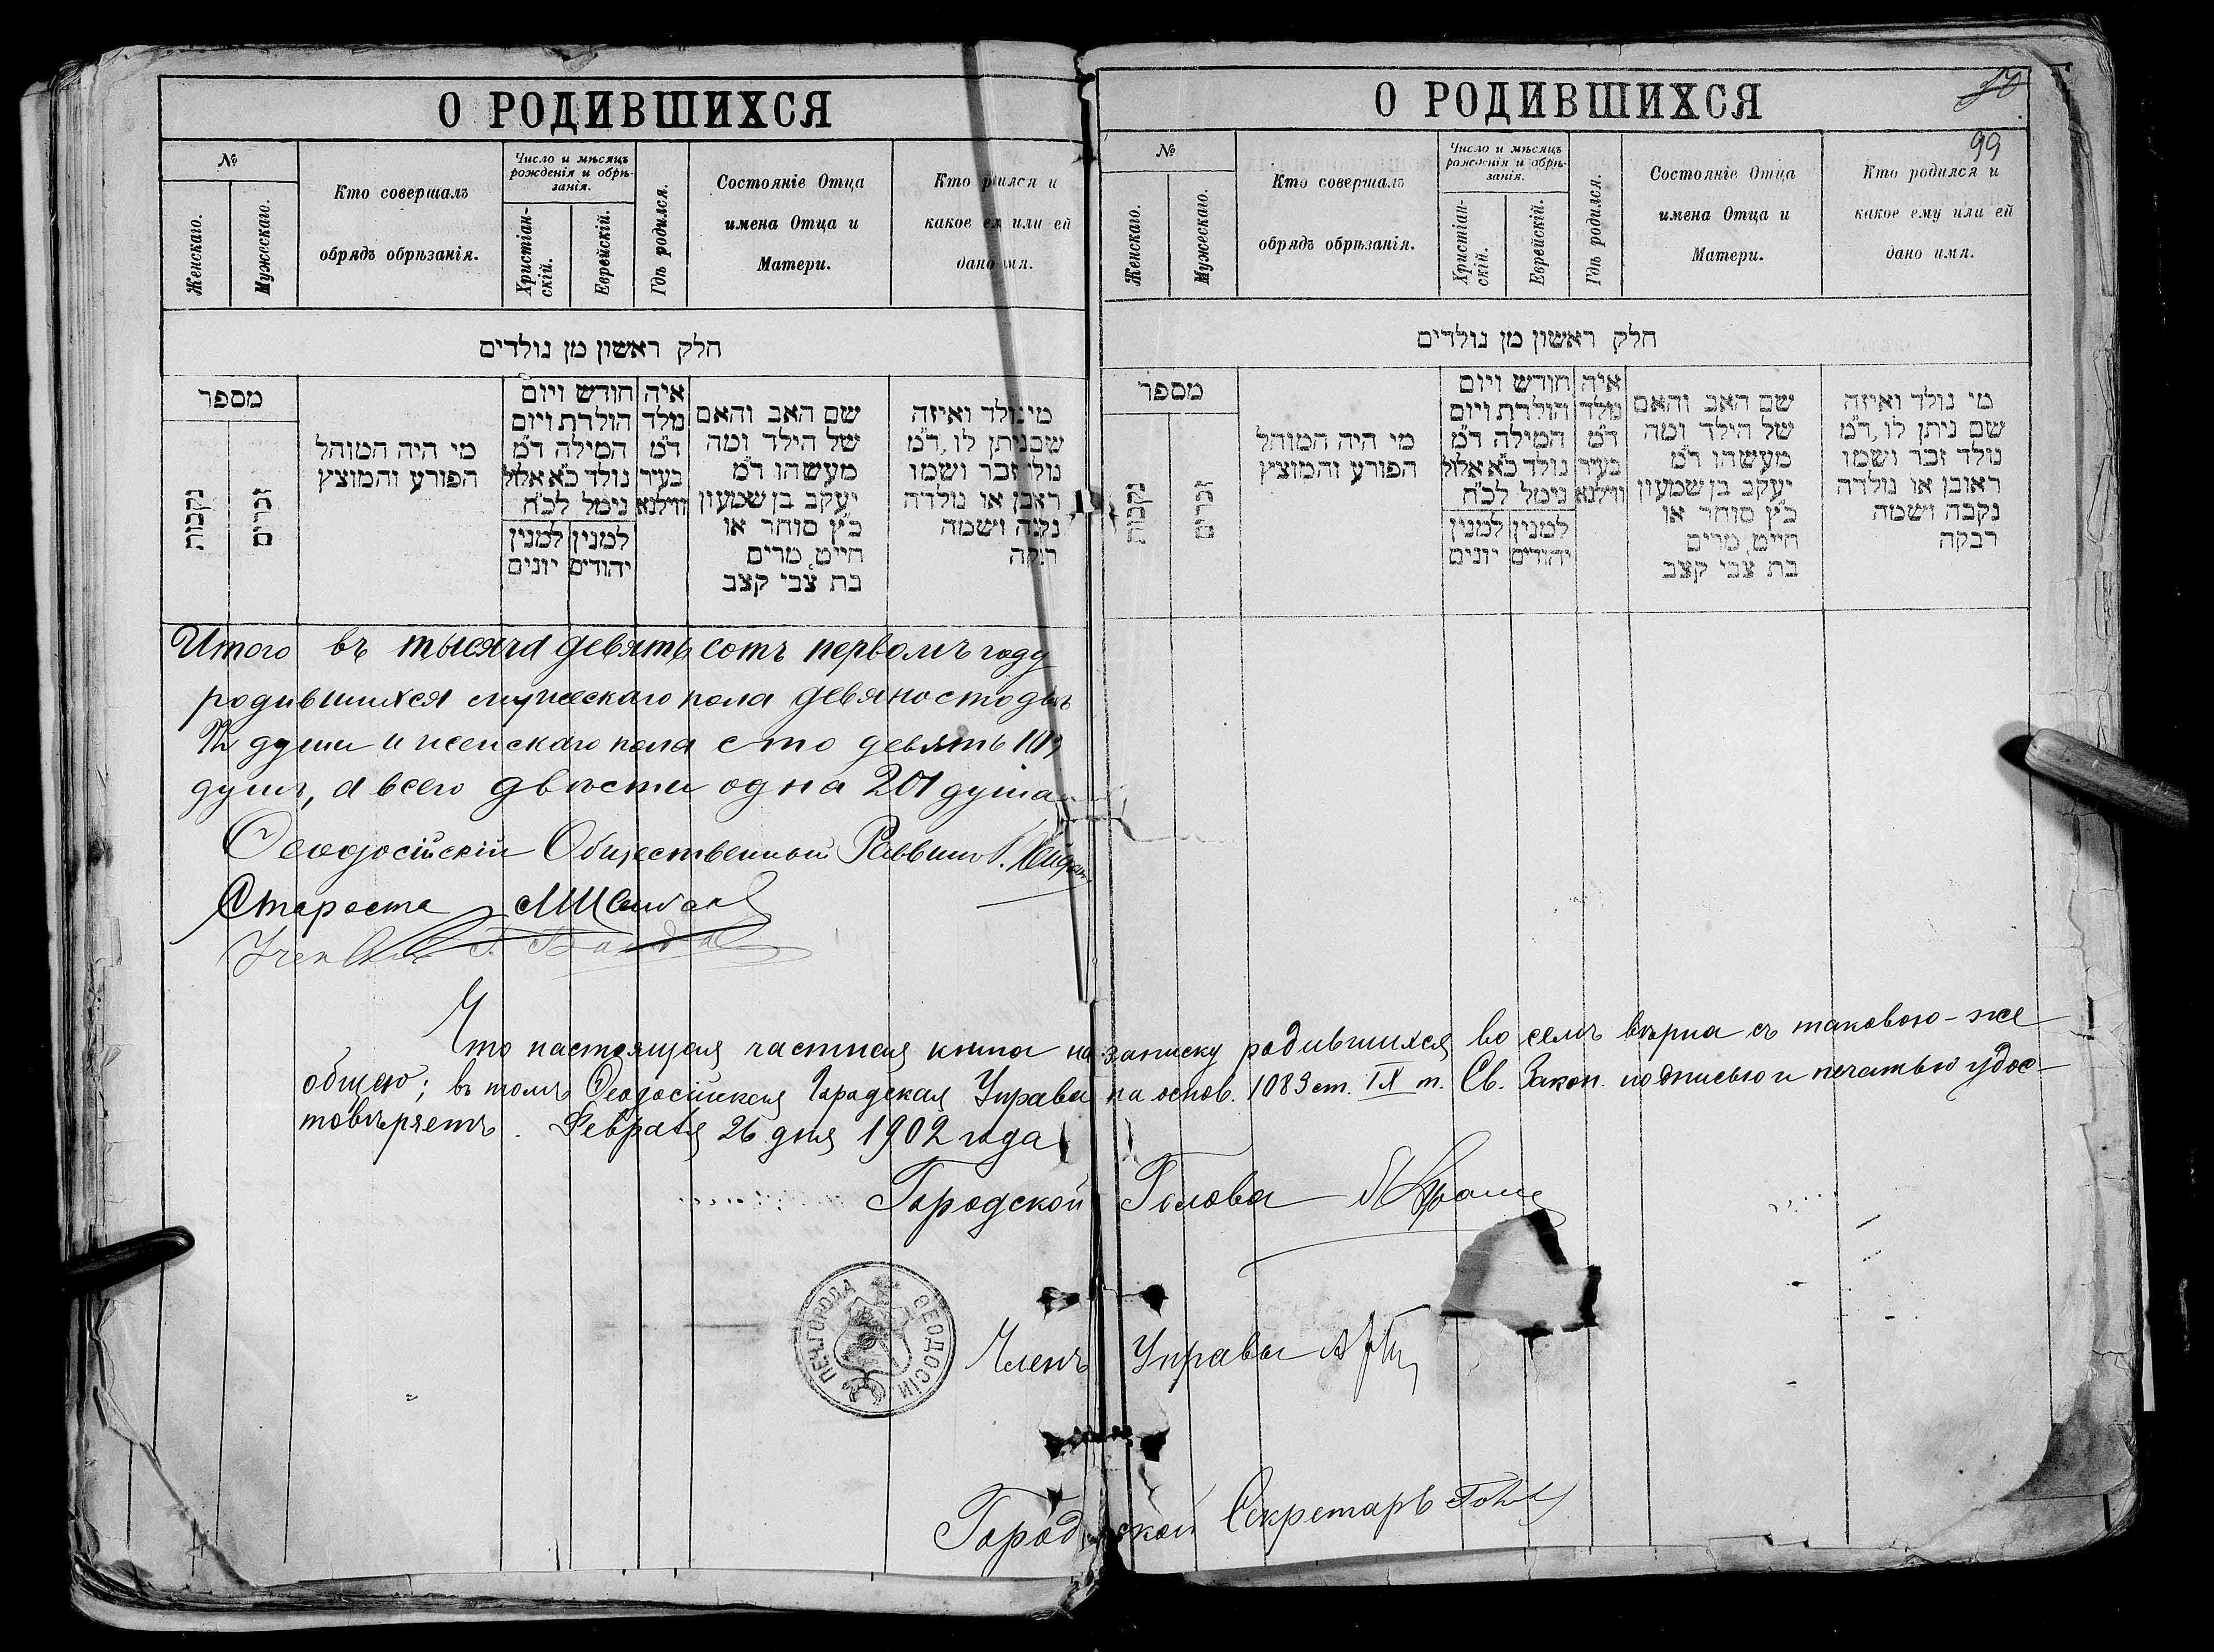 О РОДИВШИХСЯ
№
Женскаго.
Мужескаго.
Кто совершалъ
обрядъ обрѣзанія.
Число и мѣсяцъ
рожденія и обрѣ-
занія.
Христіан-
скій.
Еврейскій.
Гдѣ родился.
Состояніе Отца
имена Отца и
Матери.
Кто родился и
какое ему или ей
дано имя.
חלק ראשון מן נולדים
מספר
נקבות
זכרים
מי היה המוהל
הפורע והמוצץ
חודש ויום
הולדת ויום
המילה ד"מ
נולד כ"א אלול
נימל לכ"ח
למנין
יהודים
למנין
יונים
איה
נולד
ד"מ
בעיר
ווילנא
שם האב והאם
של הילד ומה
מעשהו ד"מ
יעקב בן שמעון
כ"ץ סוחר או
חייט, מרים
בת צבי קצב
מי נולד ואיזה
שם ניתן לו, ד"מ
נולד זכר ושמו
ראובן או נולדה
נקבה ושמה
רבקה
Итого въ тысяча девятьсотъ первомъ году
родившихся мужескаго пола девяносто двѣ
души и женскаго пола сто девять 109
душъ, а всего двѣсти одна 201 душа
Ѳеодосійскій Общественный Раввинъ
Староста
О РОДИВШИХСЯ
99
№
Женскаго.
Мужескаго.
Кто совершалъ
обрядъ обрѣзанія.
Число и мѣсяцъ
рожденія и обрѣ-
занія.
Христіан-
скій.
Еврейскій.
Гдѣ родился.
Состояніе Отца
имена Отца и
Матери.
Кто родился и
какое ему или ей
дано имя.
חלק ראשון מן נולדים
מספר
נקבות
זכרים
מי היה המוהל
הפורע והמוצץ
חודש ויום
הולדת ויום
המילה ד"מ
נולד כ"א אלול
נימל לכ"ח
למנין
יהודים
למנין
יונים
איה
נולד
ד"מ
בעיר
ווילנא
שם האב והאם
של הילד ומה
מעשהו ד"מ
יעקב בן שמעון
כ"ץ סוחר או
חייט, מרים
בת צבי קצב
מי נולד ואיזה
שם ניתן לו, ד"מ
נולד זכר ושמו
ראובן או נולדה
נקבה ושמה
רבקה
Что настоящая частная книга на записку родившихся во семъ вѣрна съ таковою-же
общею; въ томъ Ѳеодосійская Городская Управа на основ. 1083 ст. IX т. Св. Закон. подписью и печатью удос-
товѣряетъ. Февраля 26 дня 1902 года
Городской Голова
ПЕЧ. ГОРОДА ѲЕОДОСІИ
Членъ Управы
Городской Секретарь